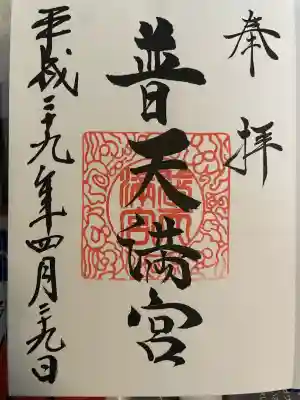 奉拝
普天満宮
平成二十九年四月二十九日